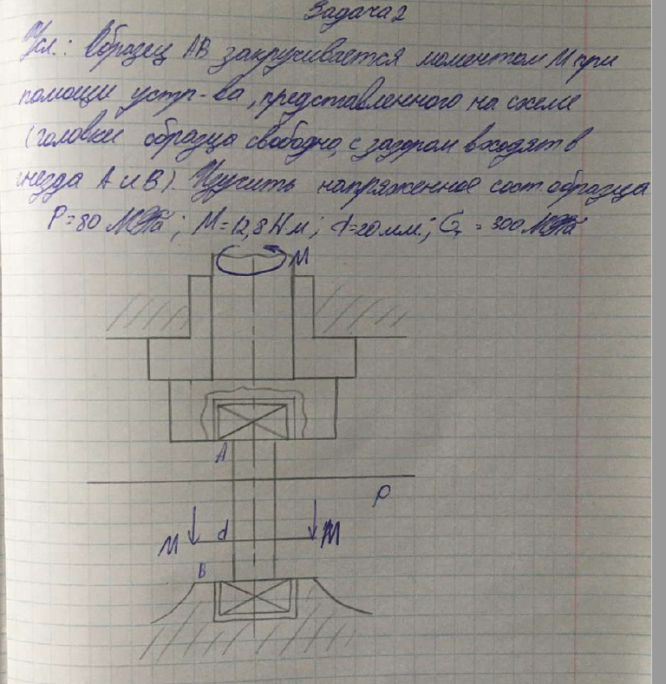 Задача 2
Усл.: Образец АВ закручивается моментом М при
помощи устр-ва, представленного на схеме
(головки образца свободно, с зазором входят в
гнезда А и В). Изучить напряженное сост образца
P=80 МПа; М=12,8 Нм; d=20 мм; σт = 300 МПа
М
А
P
М d М
В